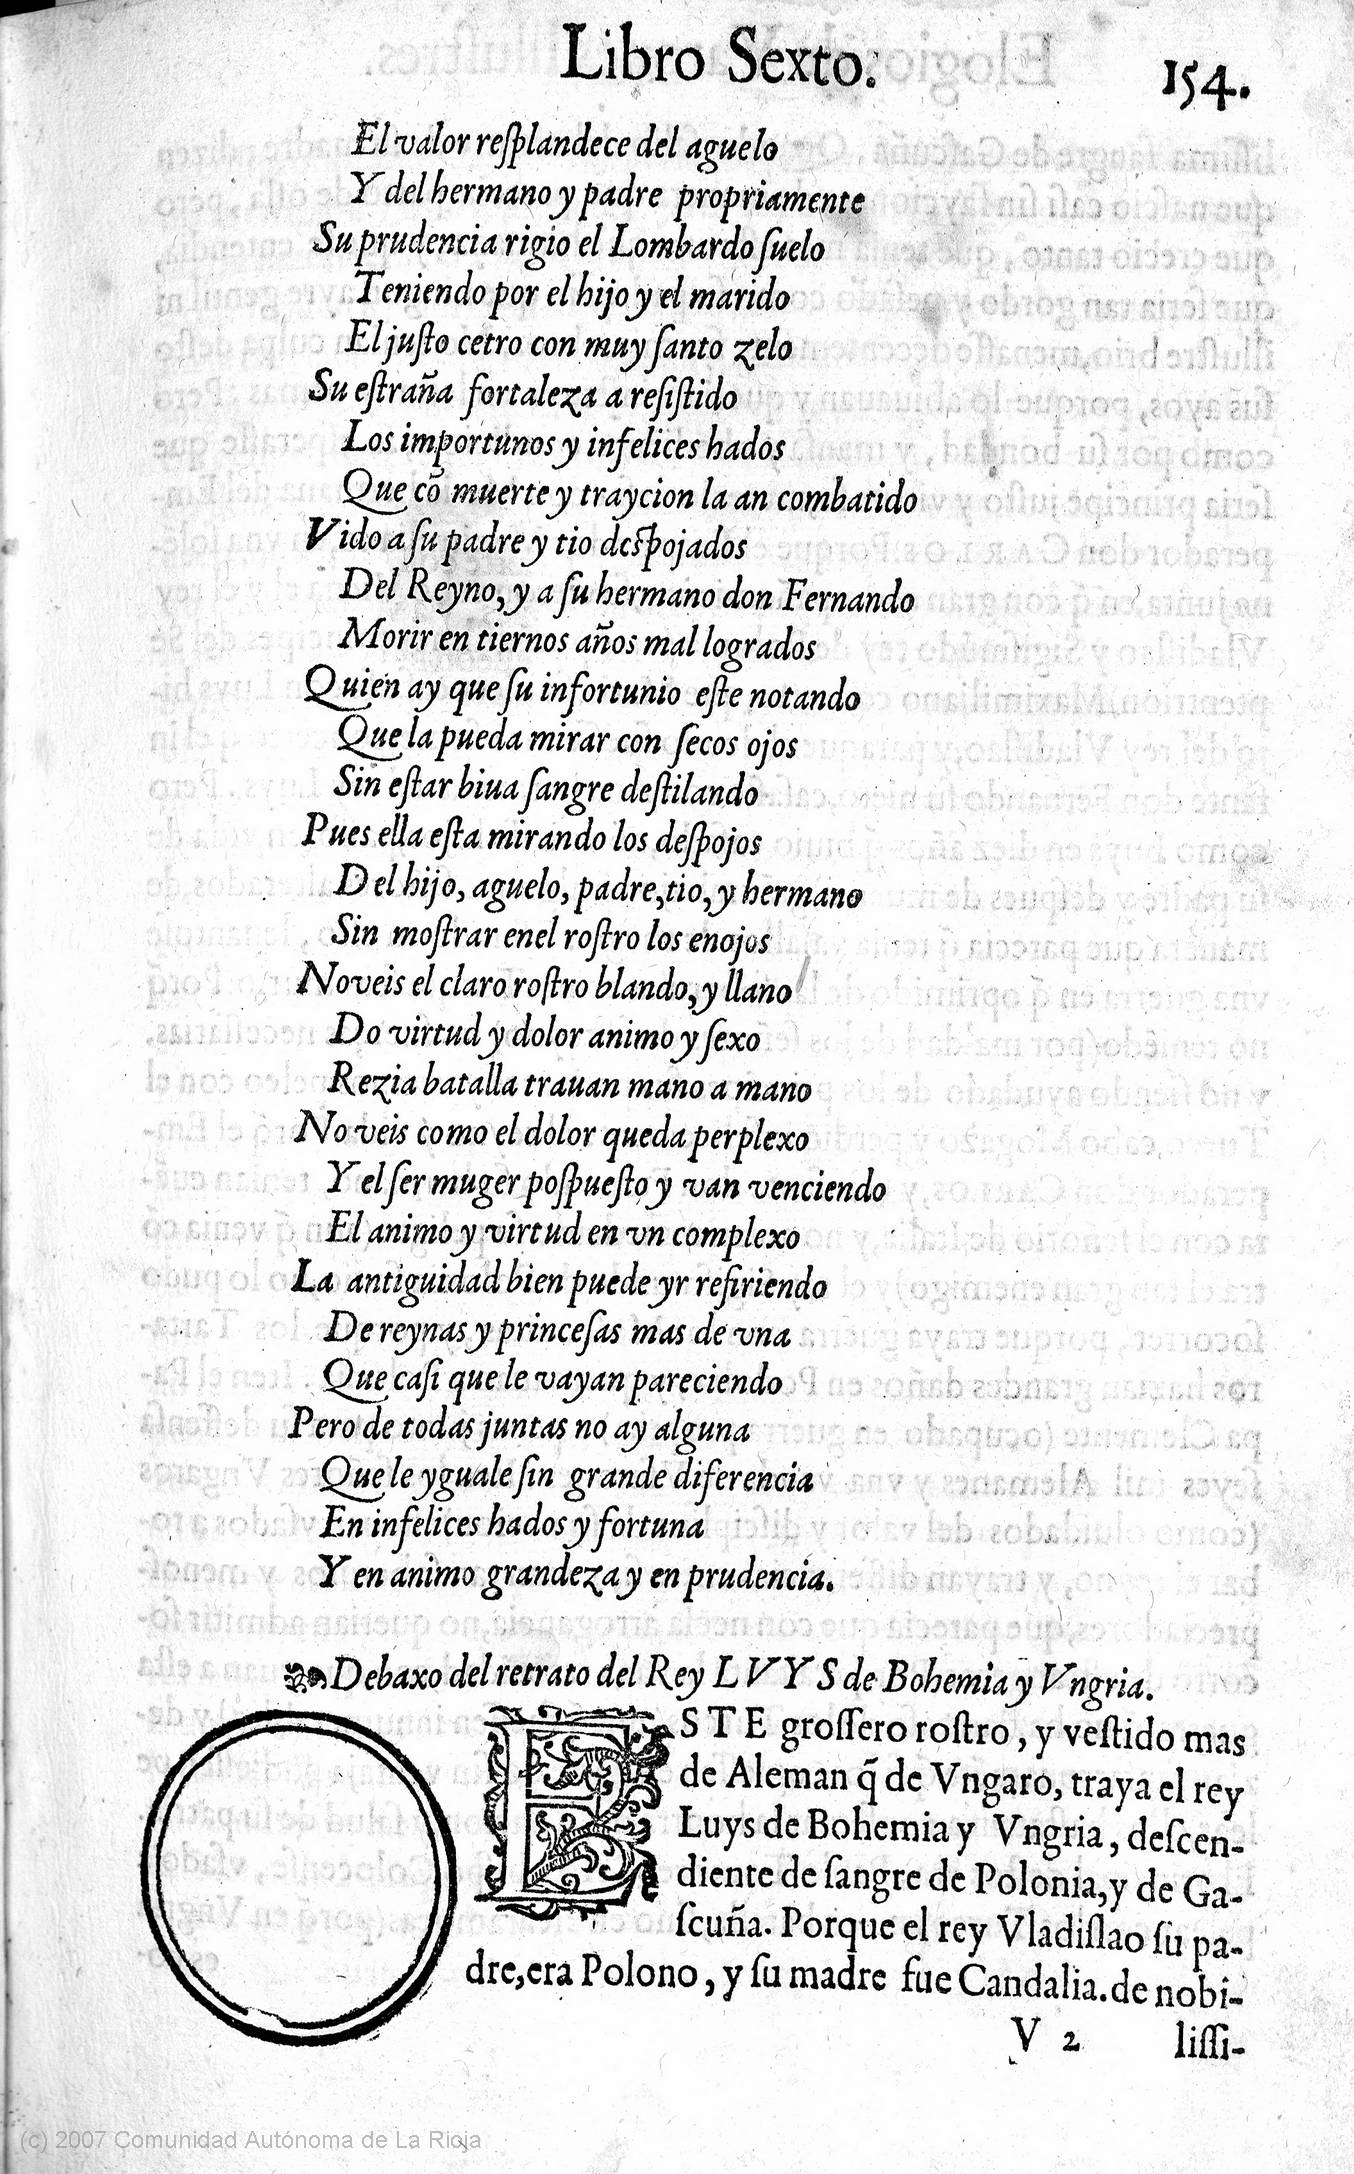 Libro Sexto.
154.
El valor resplandece del aguelo
Y del hermano y padre propriamente
Su prudencia rigio el Lombardo suelo
Teniendo por el hijo y el marido
El justo cetro con muy santo zelo
Su estraña fortaleza a resistido
Los importunos y infelices hados
Que cō muerte y traycion la an combatido
Vido a su padre y tio despojados
Del Reyno, y a su hermano don Fernando
Morir en tiernos años mal logrados
Quien ay que su infortunio este notando
Que la pueda mirar con secos ojos
Sin estar biua sangre destilando
Pues ella esta mirando los despojos
Del hijo, aguelo, padre, tio, y hermano
Sin mostrar enel rostro los enojos
No veis el claro rostro blando, y llano
Do virtud y dolor animo y sexo
Rezia batalla trauan mano a mano
No veis como el dolor queda perplexo
Y el ser muger pospuesto y van venciendo
El animo y virtud en vn complexo
La antiguidad bien puede yr refiriendo
De reynas y princesas mas de vna
Que casi que le vayan pareciendo
Pero de todas juntas no ay alguna
Que le yguale sin grande diferencia
En infelices hados y fortuna
Y en animo grandeza y en prudencia.
Debaxo del retrato del Rey LVYS de Bohemia y Vngria.
ESTE grossero rostro, y vestido mas
de Aleman q̃ de Vngaro, traya el rey
Luys de Bohemia y Vngria, descen-
diente de sangre de Polonia, y de Ga-
scuña. Porque el rey Vladislao su pa-
dre, era Polono, y su madre fue Candalia. de nobi-
V 2
lissi-
(c) 2007 Comunidad Autónoma de La Rioja